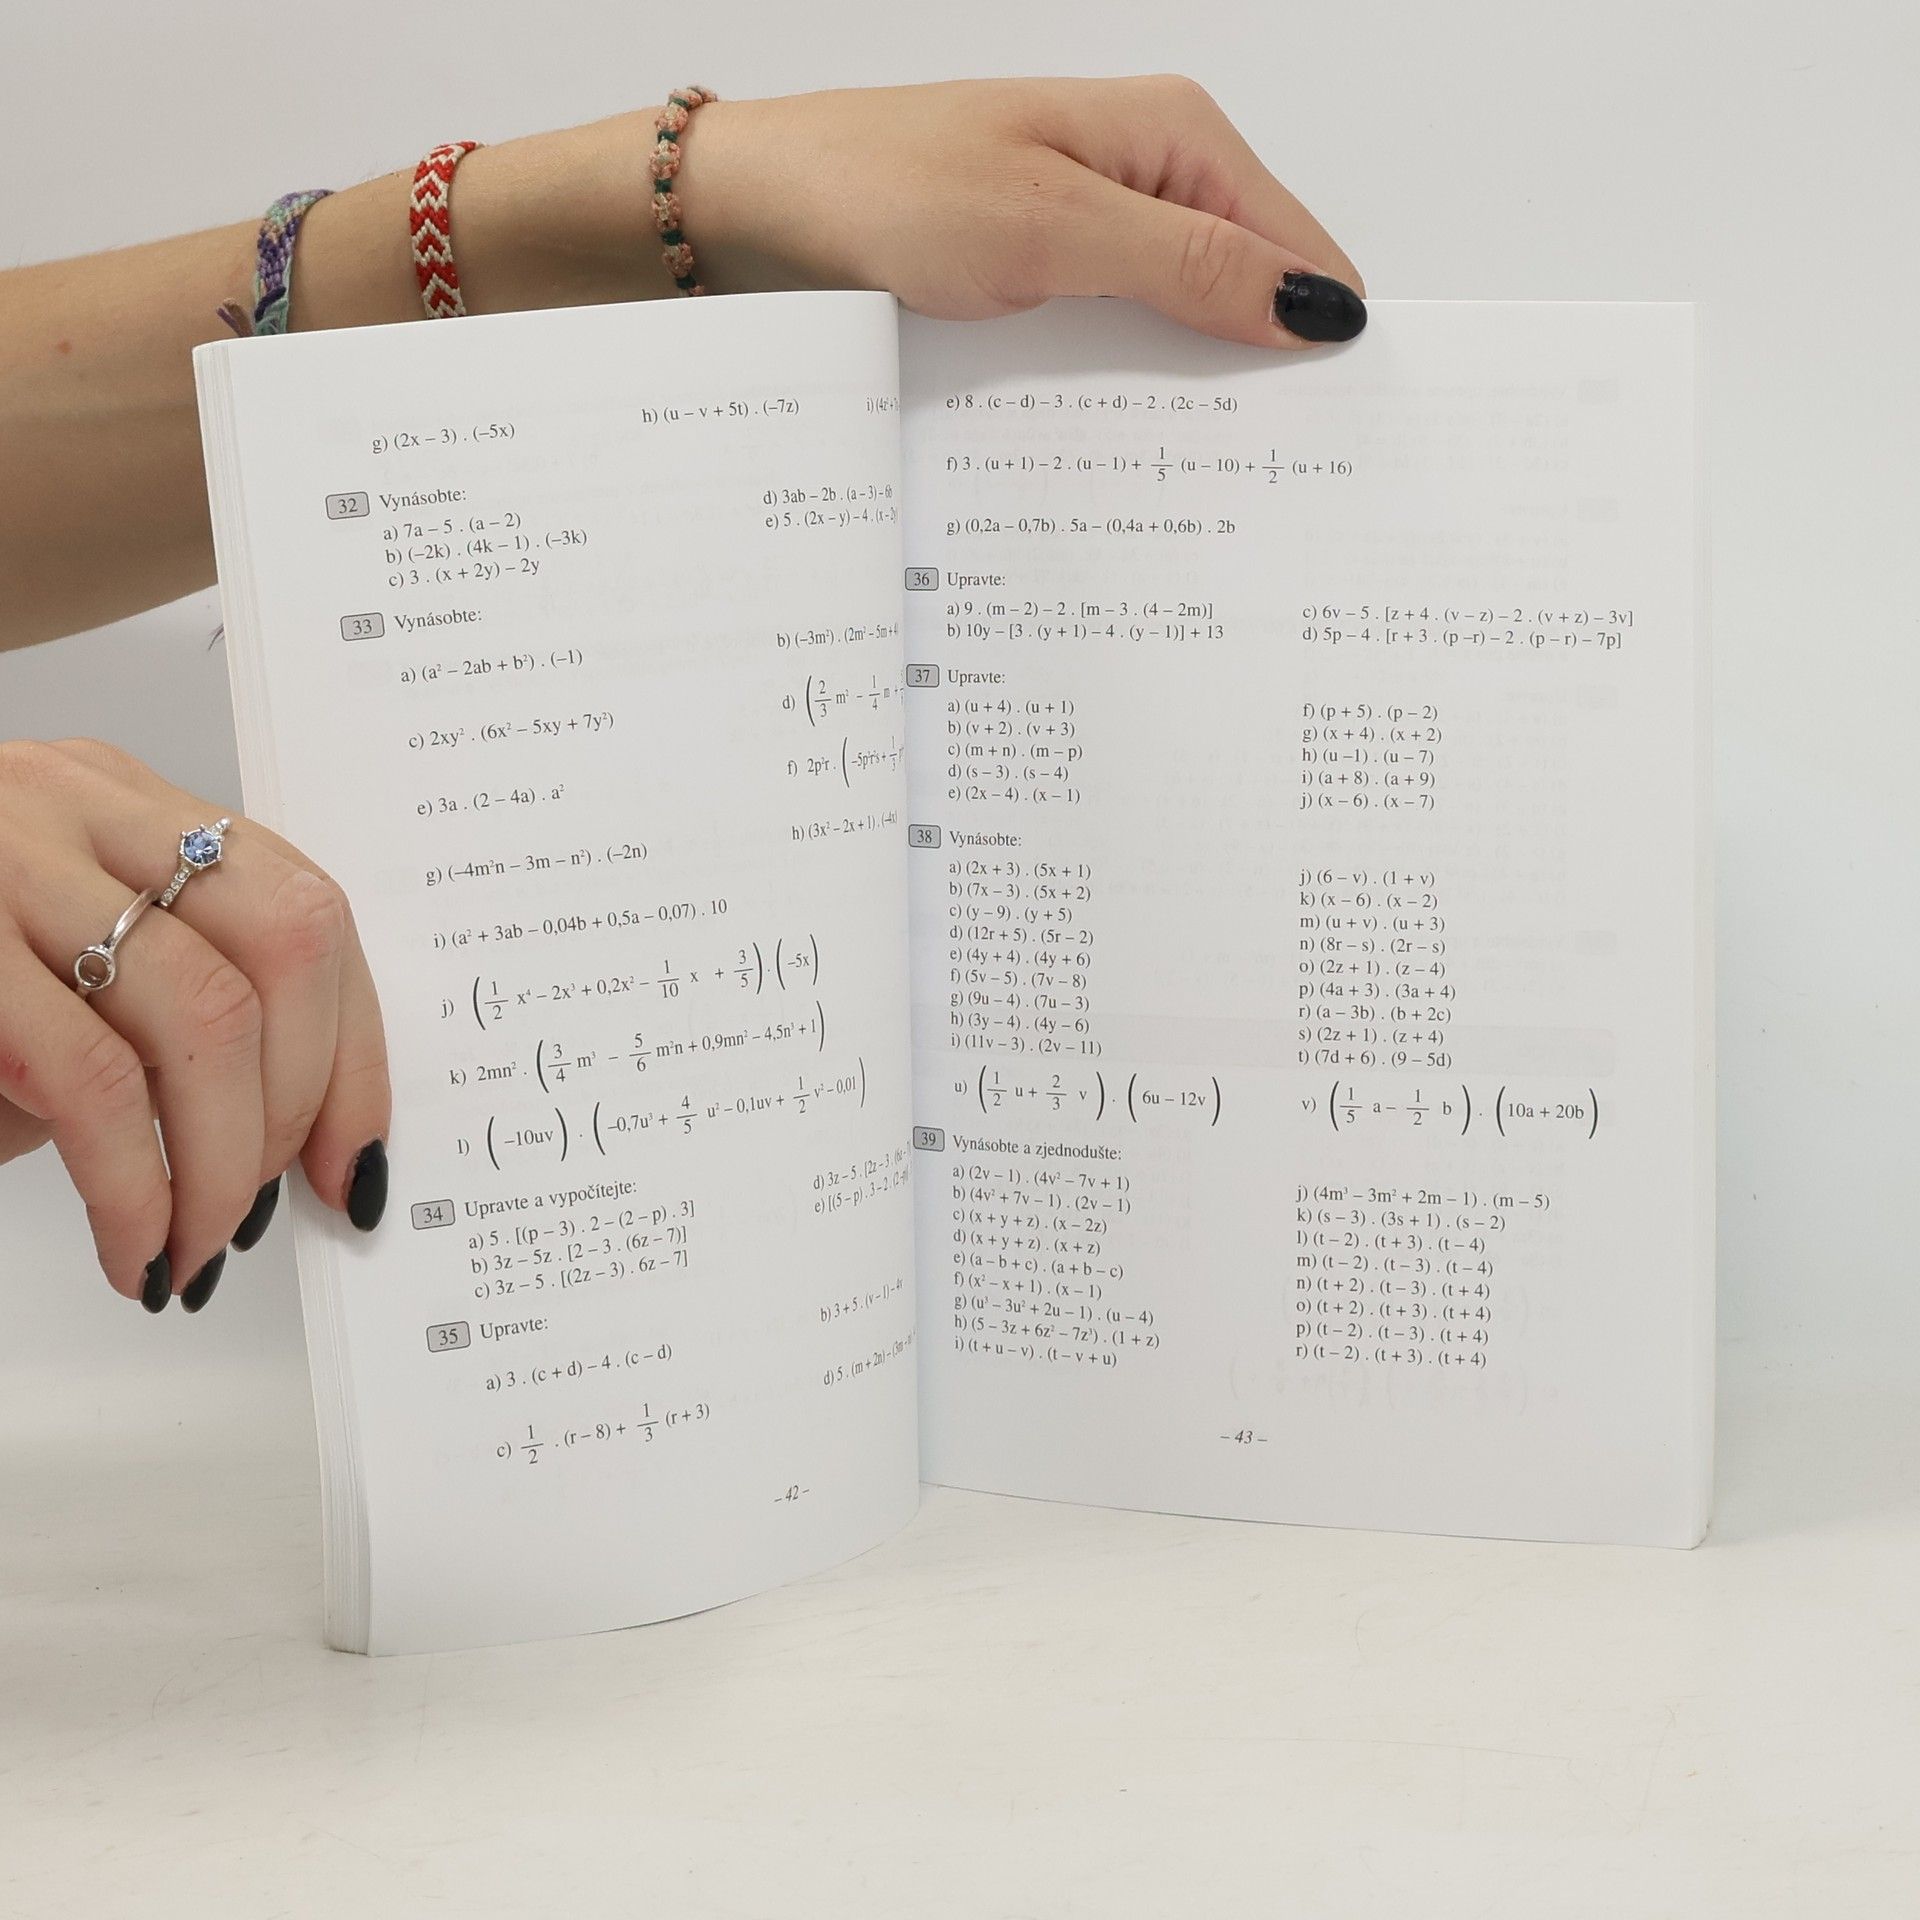 g) (2x – 3) . (–5x)
h) (u – v + 5t) . (–7z)
32 Vynásobte:
a) 7a – 5 . (a – 2)
b) (–2k) . (4k – 1) . (–3k)
c) 3 . (x + 2y) – 2y
d) 3ab – 2b . (a – 3) – 6b
e) 5 . (2x – y) – 4 . (x – 2y)
33 Vynásobte:
a) (a² – 2ab + b²) . (–1)
b) (–3m²) . (2m² – 5m + 4
c) 2xy² . (6x² – 5xy + 7y²)
d) (2/3 m² – 1/4 m +
e) 3a . (2 – 4a) . a²
f) 2p²r . (–5p²r²s + 1/3
g) (–4m²n – 3m – n²) . (–2n)
h) (3x² – 2x + 1) . (–4x)
i) (a² + 3ab – 0,04b + 0,5a – 0,07) . 10
j) (1/2 x⁴ – 2x³ + 0,2x² – 1/10 x + 3/5) . (–5x)
k) 2mn² . (3/4 m³ – 5/6 m²n + 0,9mn² – 4,5n³ + 1)
l) (–10uv) . (–0,7u³ + 4/5 u² – 0,1uv + 1/2 v² – 0,01)
34 Upravte a vypočítejte:
a) 5 . [(p – 3) . 2 – (2 – p) . 3]
b) 3z – 5z . [2 – 3 . (6z – 7)]
c) 3z – 5 . [(2z – 3) . 6z – 7]
d) 3z – 5 . [2z – 3 . (6z –
e) [(5 – p) . 3 – 2 . (2 – p)
35 Upravte:
a) 3 . (c + d) – 4 . (c – d)
b) 3 + 5 . (v – 1) – 4v
c) 1/2 . (r – 8) + 1/3 (r + 3)
d) 5 . (m + 2n) – (3m –
– 42 –
e) 8 . (c – d) – 3 . (c + d) – 2 . (2c – 5d)
f) 3 . (u + 1) – 2 . (u – 1) + 1/5 (u – 10) + 1/2 (u + 16)
g) (0,2a – 0,7b) . 5a – (0,4a + 0,6b) . 2b
36 Upravte:
a) 9 . (m – 2) – 2 . [m – 3 . (4 – 2m)]
b) 10y – [3 . (y + 1) – 4 . (y – 1)] + 13
c) 6v – 5 . [z + 4 . (v – z) – 2 . (v + z) – 3v]
d) 5p – 4 . [r + 3 . (p –r) – 2 . (p – r) – 7p]
37 Upravte:
a) (u + 4) . (u + 1)
b) (v + 2) . (v + 3)
c) (m + n) . (m – p)
d) (s – 3) . (s – 4)
e) (2x – 4) . (x – 1)
f) (p + 5) . (p – 2)
g) (x + 4) . (x + 2)
h) (u –1) . (u – 7)
i) (a + 8) . (a + 9)
j) (x – 6) . (x – 7)
38 Vynásobte:
a) (2x + 3) . (5x + 1)
b) (7x – 3) . (5x + 2)
c) (y – 9) . (y + 5)
d) (12r + 5) . (5r – 2)
e) (4y + 4) . (4y + 6)
f) (5v – 5) . (7v – 8)
g) (9u – 4) . (7u – 3)
h) (3y – 4) . (4y – 6)
i) (11v – 3) . (2v – 11)
j) (6 – v) . (1 + v)
k) (x – 6) . (x – 2)
m) (u + v) . (u + 3)
n) (8r – s) . (2r – s)
o) (2z + 1) . (z – 4)
p) (4a + 3) . (3a + 4)
r) (a – 3b) . (b + 2c)
s) (2z + 1) . (z + 4)
t) (7d + 6) . (9 – 5d)
u) (1/2 u + 2/3 v) . (6u – 12v)
v) (1/5 a – 1/2 b) . (10a + 20b)
39 Vynásobte a zjednodušte:
a) (2v – 1) . (4v² – 7v + 1)
b) (4v² + 7v – 1) . (2v – 1)
c) (x + y + z) . (x – 2z)
d) (x + y + z) . (x + z)
e) (a – b + c) . (a + b – c)
f) (x² – x + 1) . (x – 1)
g) (u³ – 3u² + 2u – 1) . (u – 4)
h) (5 – 3z + 6z² – 7z³) . (1 + z)
i) (t + u – v) . (t – v + u)
j) (4m³ – 3m² + 2m – 1) . (m – 5)
k) (s – 3) . (3s + 1) . (s – 2)
l) (t – 2) . (t + 3) . (t – 4)
m) (t – 2) . (t – 3) . (t – 4)
n) (t + 2) . (t – 3) . (t + 4)
o) (t + 2) . (t + 3) . (t + 4)
p) (t – 2) . (t – 3) . (t + 4)
r) (t – 2) . (t + 3) . (t + 4)
– 43 –